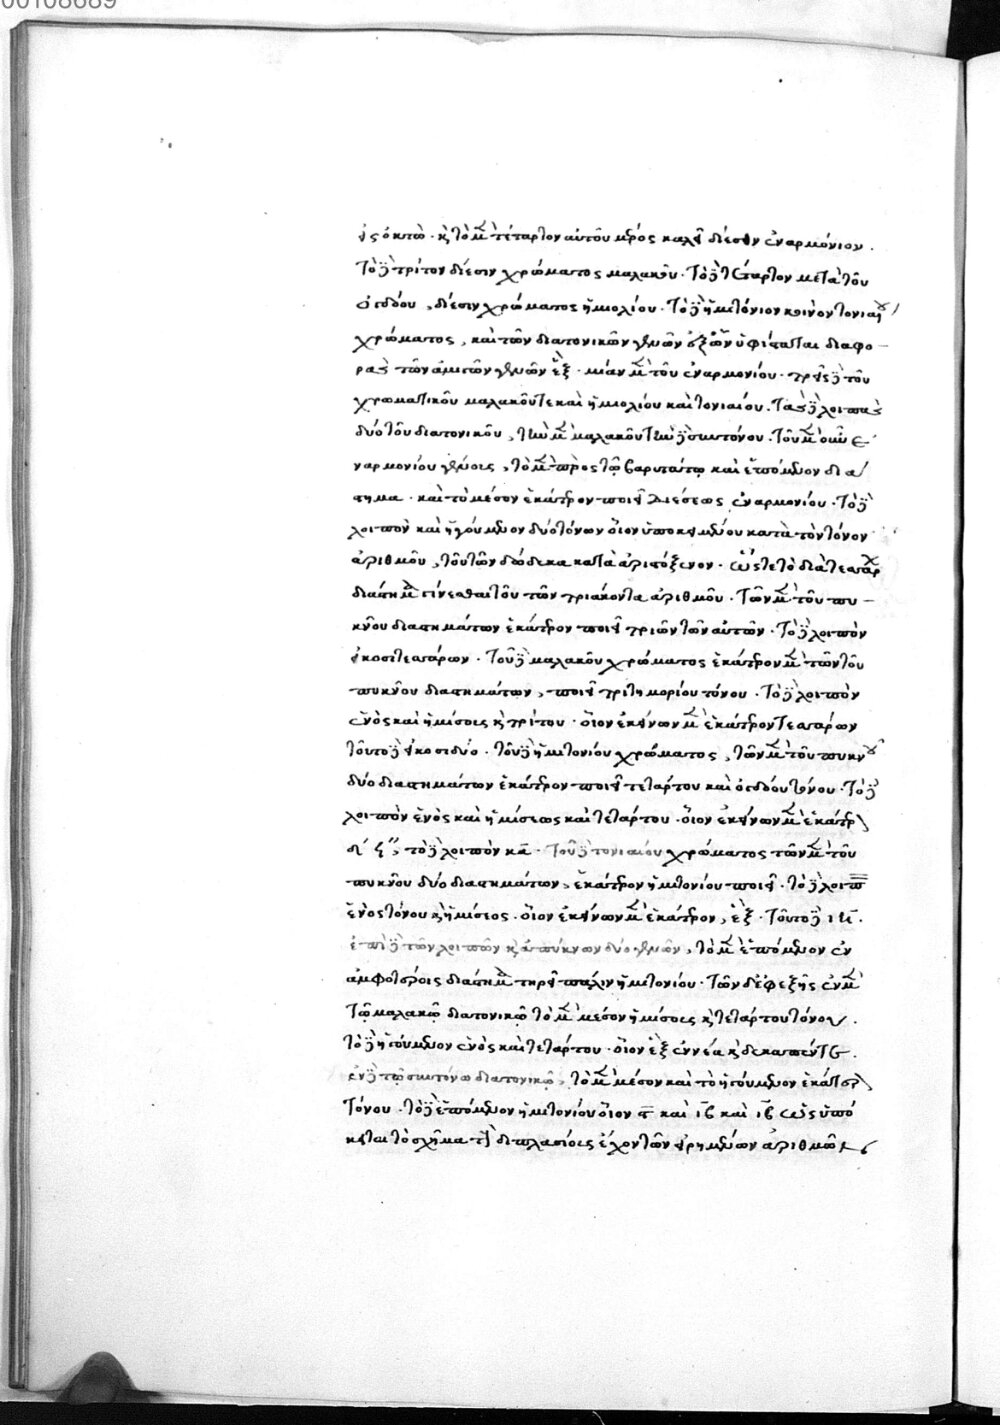 00108689
εἰς ὀκτὼ · κ̀ τὸ μ̀ τέταρτον αὐτοῦ μέρος καλεῖ δίεσιν ἐναρμόνιον ·
Τὸ δ̀ τρίτον δίεσιν χρώματος μαλακοῦ · Τὸ δ̀ τέταρτον μετὰ τοῦ
ὀγδόου, δίεσιν χρώματος ἡμιολίου · Τὸ δ̀ ἡμιτόνιον κοινὸν τονιαίου
χρώματος, καὶ τῶν διατονικῶν γενῶν ἐξ ὧν ὑφίσταται διαφο-
ρὰς τῶν ἀμικτῶν γενῶν ἓξ · μίαν μ̀ τοῦ ἐναρμονίου · τρεῖς δ̀ τοῦ
χρωματικοῦ μαλακοῦ τε καὶ ἡμιολίου καὶ τονιαίου · Τὰς δ̀ λοιπὰς
δύο τοῦ διατονικοῦ, τὴν μ̀ μαλακοῦ τὴν δ̀ συντόνου · Τοῦ μ̀ οὖν ἐ-
ναρμονίου γένους, τὸ μ̀ πρὸς τῷ βαρυτάτῳ καὶ ἑπόμενον διά
στημα · καὶ τὸ μέσον ἑκάτερον ποιεῖ διέσεως ἐναρμονίου · Τὸ δ̀
λοιπὸν καὶ ἡγούμενον δύο τόνων οἷον ὑποκειμένου κατὰ τὸν τόνον
ἀριθμοῦ, τοῦ τῶν δώδεκα κατὰ ἀριστόξενον · ὥστε τὸ διὰ τεσσάρ
διάστημα γίνεσθαι τοῦ τῶν τριάκοντα ἀριθμοῦ · Τῶν μ̀ τοῦ πυ-
κνοῦ διαστημάτων ἑκάτερον ποιεῖ τριῶν τῶν αὐτῶν · Τὸ δ̀ λοιπὸν
εἰκοσιτεσσάρων · Τοῦ δ̀ μαλακοῦ χρώματος ἑκάτερον μ̀ τῶν τοῦ
πυκνοῦ διαστημάτων, ποιεῖ τριτημορίου τόνου · Τὸ δ̀ λοιπὸν
ἑνὸς καὶ ἡμίσους κ̀ τρίτου · οἷον ἐκείνων μ̀ ἑκάτερον τεσσάρων
τοῦτο δ̀ εἰκοσιδύο · τοῦ δ̀ ἡμιτονίου χρώματος, τῶν μ̀ τοῦ πυκνοῦ
δύο διαστημάτων ἑκάτερον ποιεῖ τετάρτου καὶ ὀγδόου τόνου · Τὸ δ̀
λοιπὸν ἑνὸς καὶ ἡμίσεως καὶ τετάρτου · οἷον ἐκείνων μ̀ ἑκάτερ
δ ϛʹʹ, τὸ δ̀ λοιπὸν κα · Τοῦ δ̀ τονιαίου χρώματος τῶν μ̀ τοῦ
πυκνοῦ δύο διαστημάτων, ἑκάτερον ἡμιτονίου ποιεῖ · τὸ δ̀ λοιπ
ἑνὸς τόνου κ̀ ἡμίσεος · οἷον ἐκείνων μ̀ ἑκάτερον, ἓξ · Τοῦτο δ̀ ιη ·
ἐπὶ δ̀ τῶν λοιπῶν κ̀ ἀπύκνων δύο γενῶν, τὸ μ̀ ἑπόμενον ἐν
ἀμφοτέροις διάστημα τηρεῖ πάλιν ἡμιτονίου · Τῶν δὲ ἐφεξῆς ἐν μ̀
τῷ μαλακῷ διατονικῷ τὸ μ̀ μέσον ἡμίσους κ̀ τετάρτου τόνου ·
τὸ δ̀ ἡγούμενον ἑνὸς καὶ τετάρτου · οἷον ἓξ ἐννέα κ̀ δεκαπέντε ·
ἐν δ̀ τῷ συντόνῳ διατονικῷ, τὸ μ̀ μέσον καὶ τὸ ἡγούμενον ἑκάτερ
τόνου · τὸ δ̀ ἑπόμενον ἡμιτονίου οἷον ϛ καὶ ιβ καὶ ιβ ὡς ὑπό
κειται τὸ σχῆμα διπλασίους ἔχον τῶν εἰρημένων ἀριθμῶν